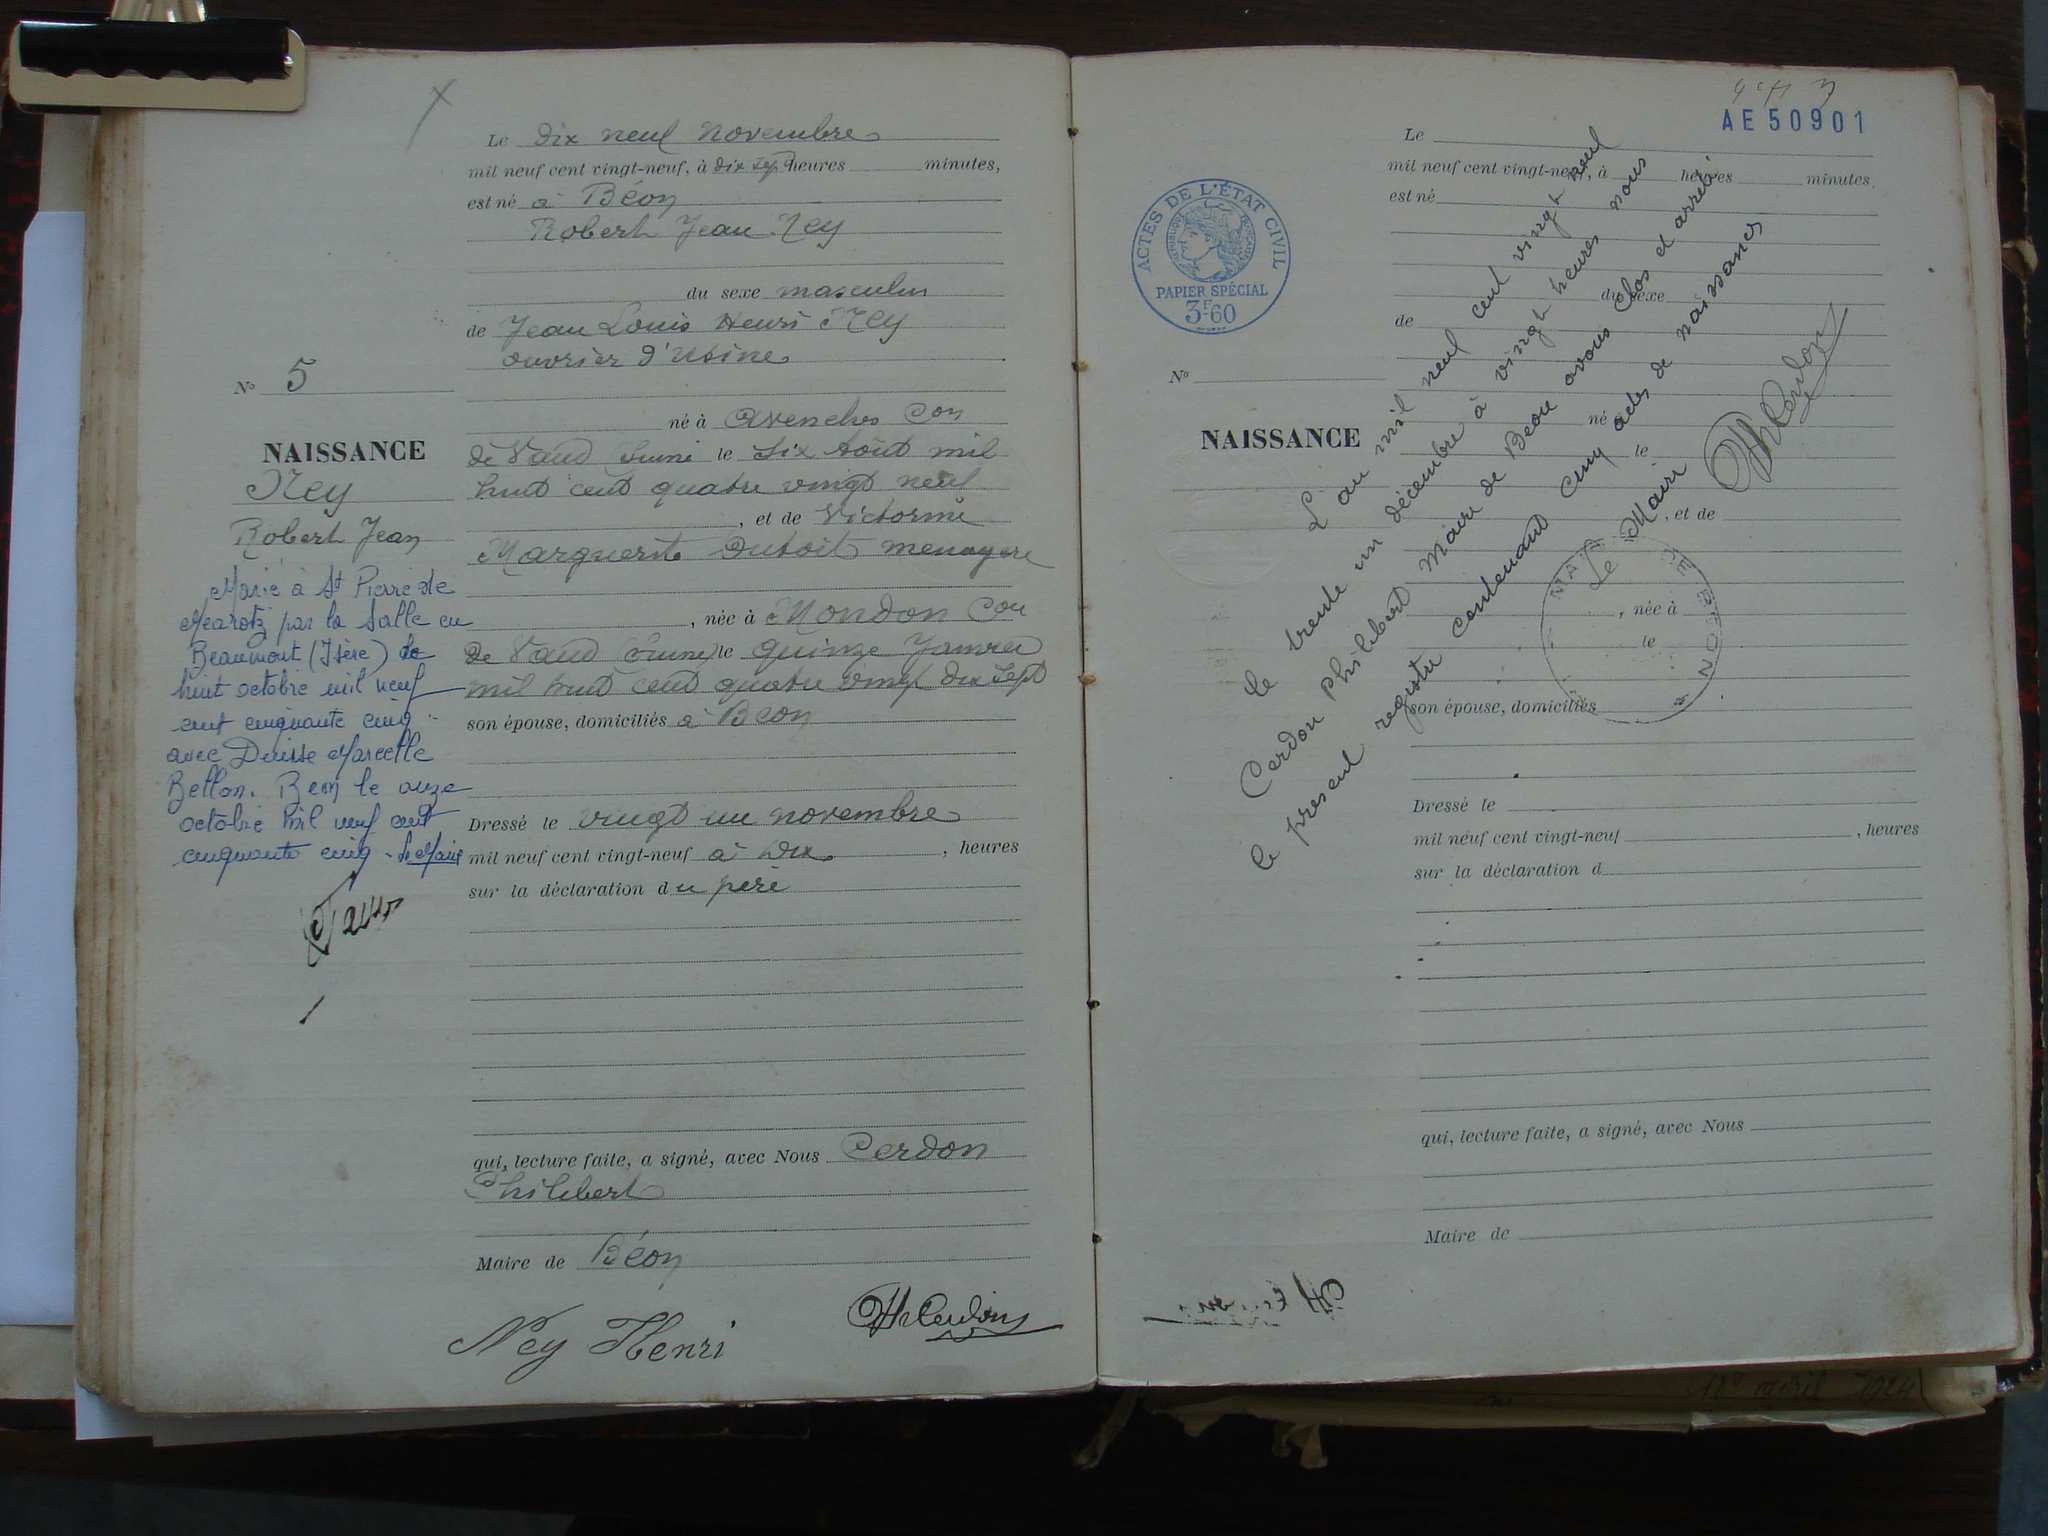 Le dix neuf Novembre
mil neuf cent vingt-neuf, à dix sept heures minutes,
est né à Béon
Robert Jean Ney
du sexe masculin
de Jean Louis Henri Ney
ouvrier d'Usine
né à Avenches Con
de Vaud Suisse le Six Août mil
huit cent quatre vingt neuf
, et de Victorine
Marguerite Dutoit menagere
, née à Moudon Con
de Vaud Suisse le quinze Janvier
mil huit cent quatre vingt dix sept
son épouse, domiciliés à Béon
Dressé le vingt un novembre
mil neuf cent vingt-neuf à dix , heures
sur la déclaration du père
qui, lecture faite, a signé, avec Nous Cerdon
Philibert
Maire de Béon
Ney Henri
No 5
NAISSANCE
Ney
Robert Jean
Marié à St Pierre de
Mearotz par la Salle en
Beaumont (Isère) le
huit octobre mil neuf
cent cinquante cinq
avec Denise Marcelle
Bellon. Beon le onze
octobre mil neuf cent
cinquante cinq - Le Maire
AE 50901
ACTES DE L'ÉTAT CIVIL
PAPIER SPÉCIAL
3F60
Le
mil neuf cent vingt-neuf, à heures minutes,
est né
du sexe
de
No
né à
NAISSANCE
le
, et de
, née à
le
son épouse, domiciliés
Dressé le
mil neuf cent vingt-neuf , heures
sur la déclaration d
qui, lecture faite, a signé, avec Nous
Maire de
L'an mil neuf cent vingt neuf
Le trente un décembre à vingt heures nous
Cerdon Philibert Maire de Beon avons clos et arrêté
le present registre contenant cinq actes de naissances
Le Maire
Ph Cerdon
MAIRIE DE BÉON